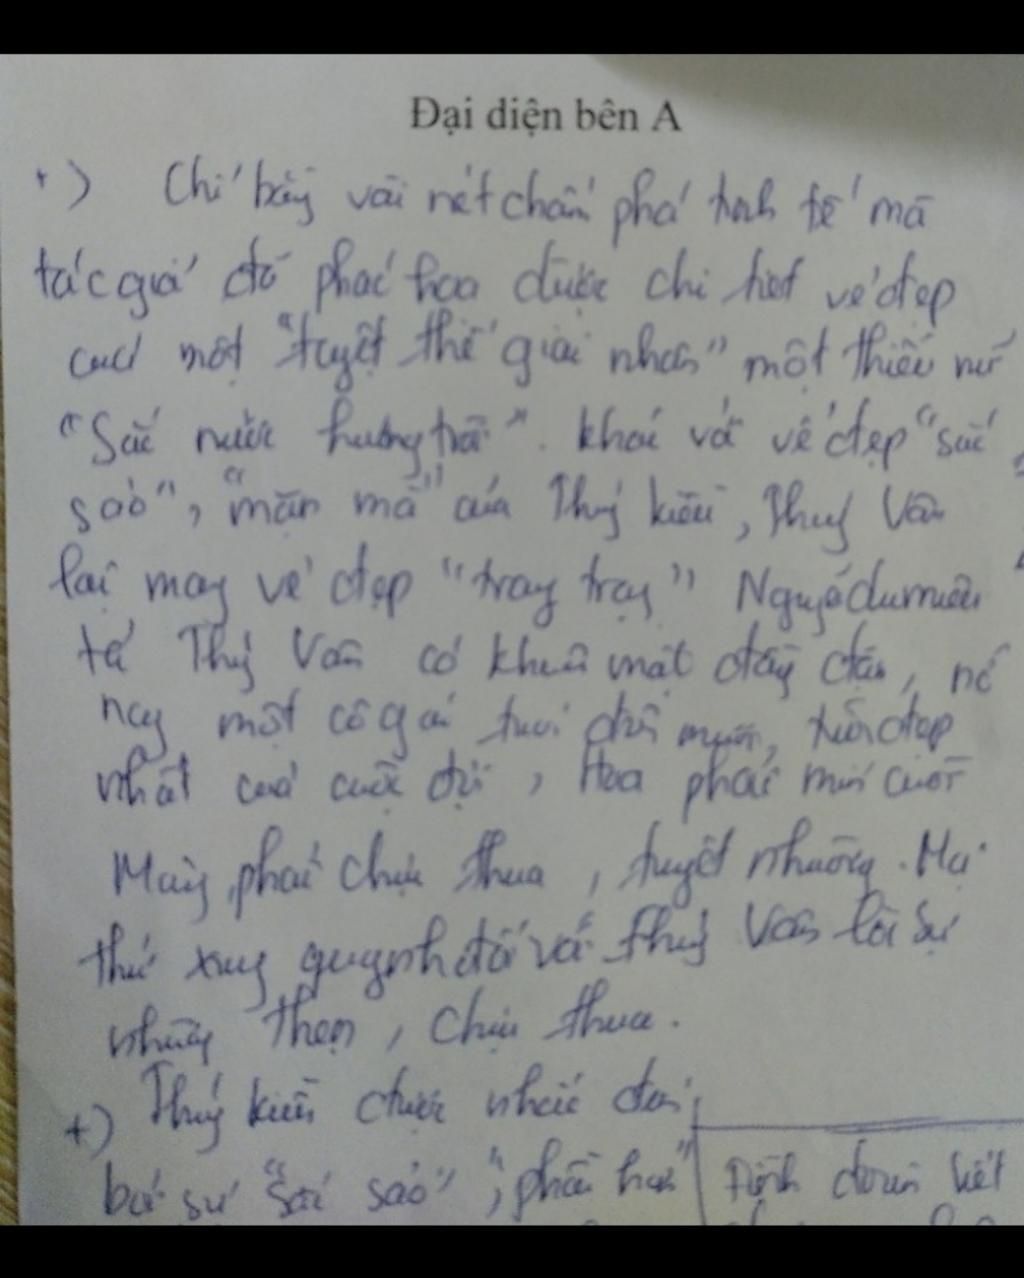 Đại diện bên A
+) Chỉ bằng vài nét chấm phá tinh tế mà
tác giả đã phác họa được chi tiết vẻ đẹp
của một "tuyệt thế giai nhân" một thiếu nữ
"Sắc nước hương trời". Khác với vẻ đẹp "sắc
sảo", "mặn mà" của Thuý Kiều, Thuý Vân
lại mang vẻ đẹp "trang trọng" Nguyễn du miêu
tả Thuý Vân có khuôn mặt đầy đặn, nở
nang một cô gái tuổi đôi mươi, tuổi đẹp
nhất của cuộc đời, Hoa phải mỉm cười
Mây phải chịu thua, tuyết nhường.
thứ xung quanh đối với Thuý Vân là sự
nhường thẹn, chịu thua.
+) Thuý Kiều được nhắc đến
bởi sự "sắc sảo", "phần hơn"